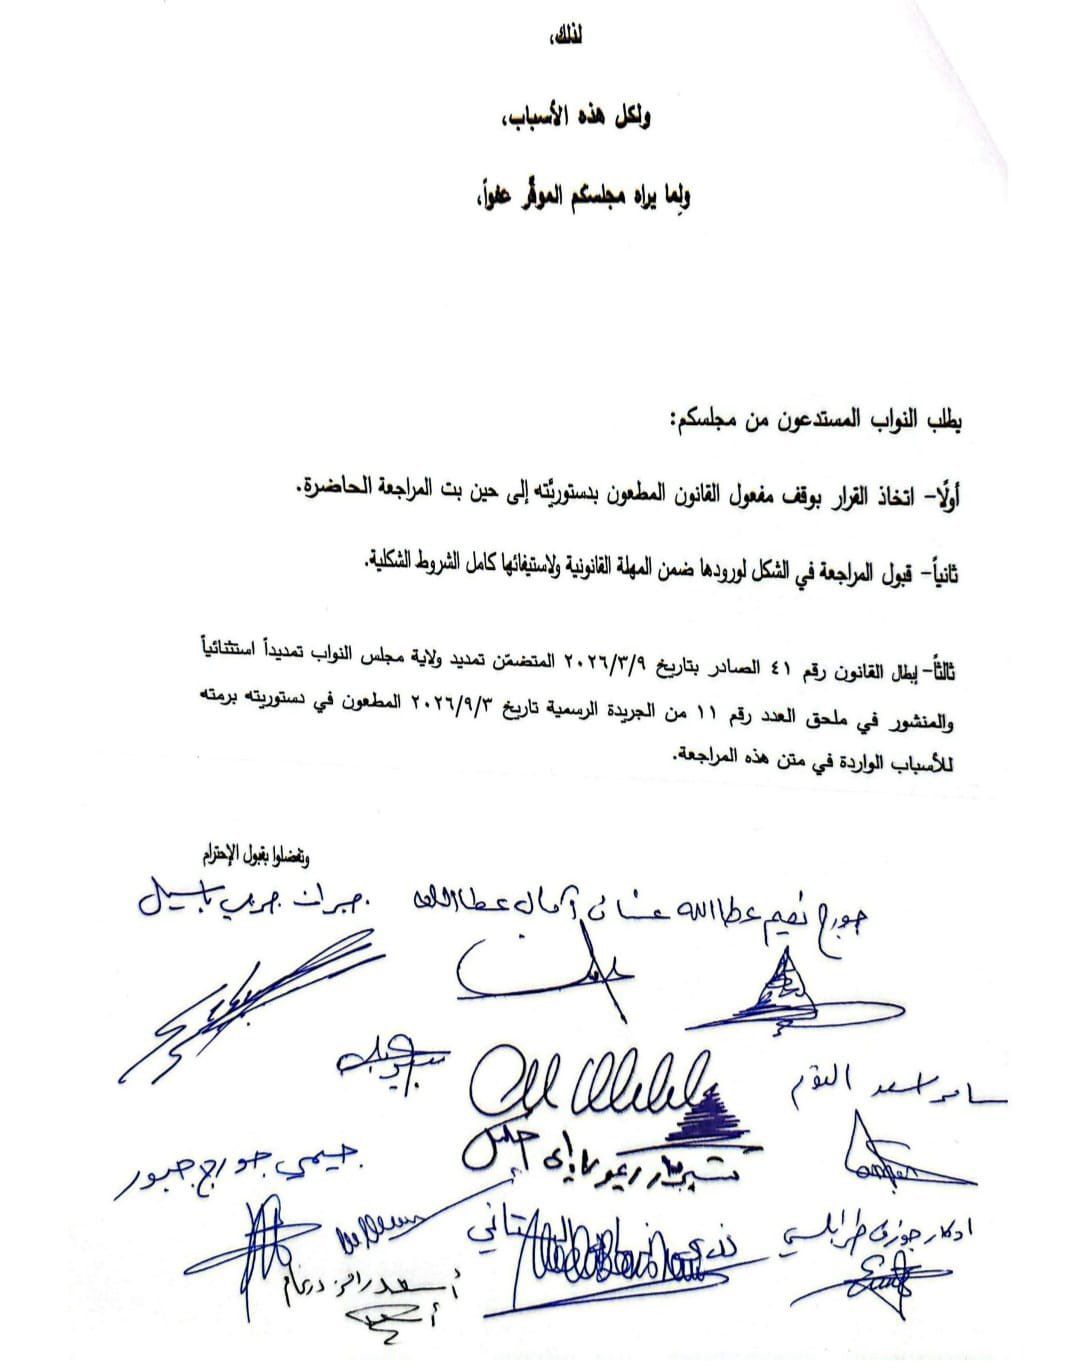 لذلك،
ولكل هذه الأسباب،
ولِما يراه مجلسكم الموقَّر عفواً،
يطلب النواب المستدعون من مجلسكم:
أولًا- اتخاذ القرار بوقف مفعول القانون المطعون بدستوريَّته إلى حين بت المراجعة الحاضرة.
ثانياً- قبول المراجعة في الشكل لورودها ضمن المهلة القانونية ولاستيفائها كامل الشروط الشكلية.
ثالثاً- إبطال القانون رقم ٤١ الصادر بتاريخ ٢٠٢٦/٣/٩ المتضمّن تمديد ولاية مجلس النواب تمديداً استثنائياً
والمنشور في ملحق العدد رقم ١١ من الجريدة الرسمية تاريخ ٢٠٢٦/٩/٣ المطعون في دستوريته برمته
للأسباب الواردة في متن هذه المراجعة.
وتفضلوا بقبول الإحترام
جورج نعيم عطاالله غسان آمال عطاالله جبران جرجي باسيل
سامر اسعد التوم
شربل جيمي جورج جبور
ادكار جوزف طرابلسي
ندى البستاني
أسعد رامز درغام